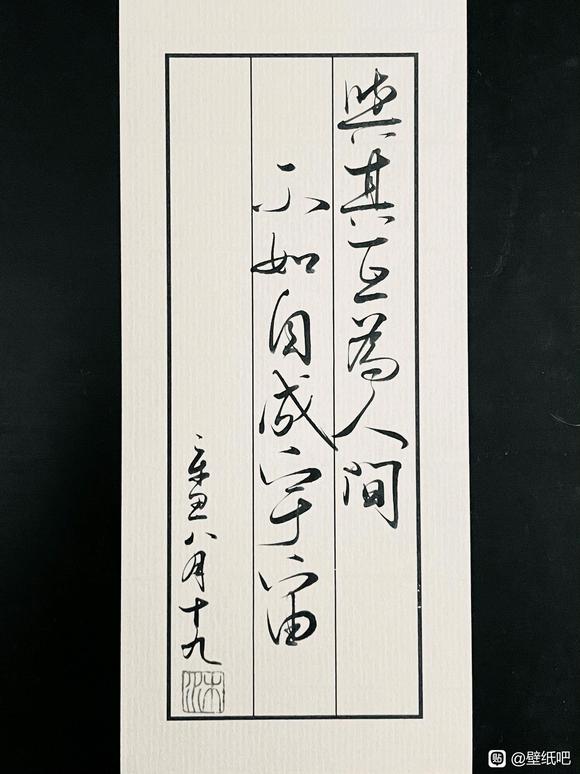 與其互為人間
不如自成宇宙
辛丑八月十九
贴 @壁纸吧